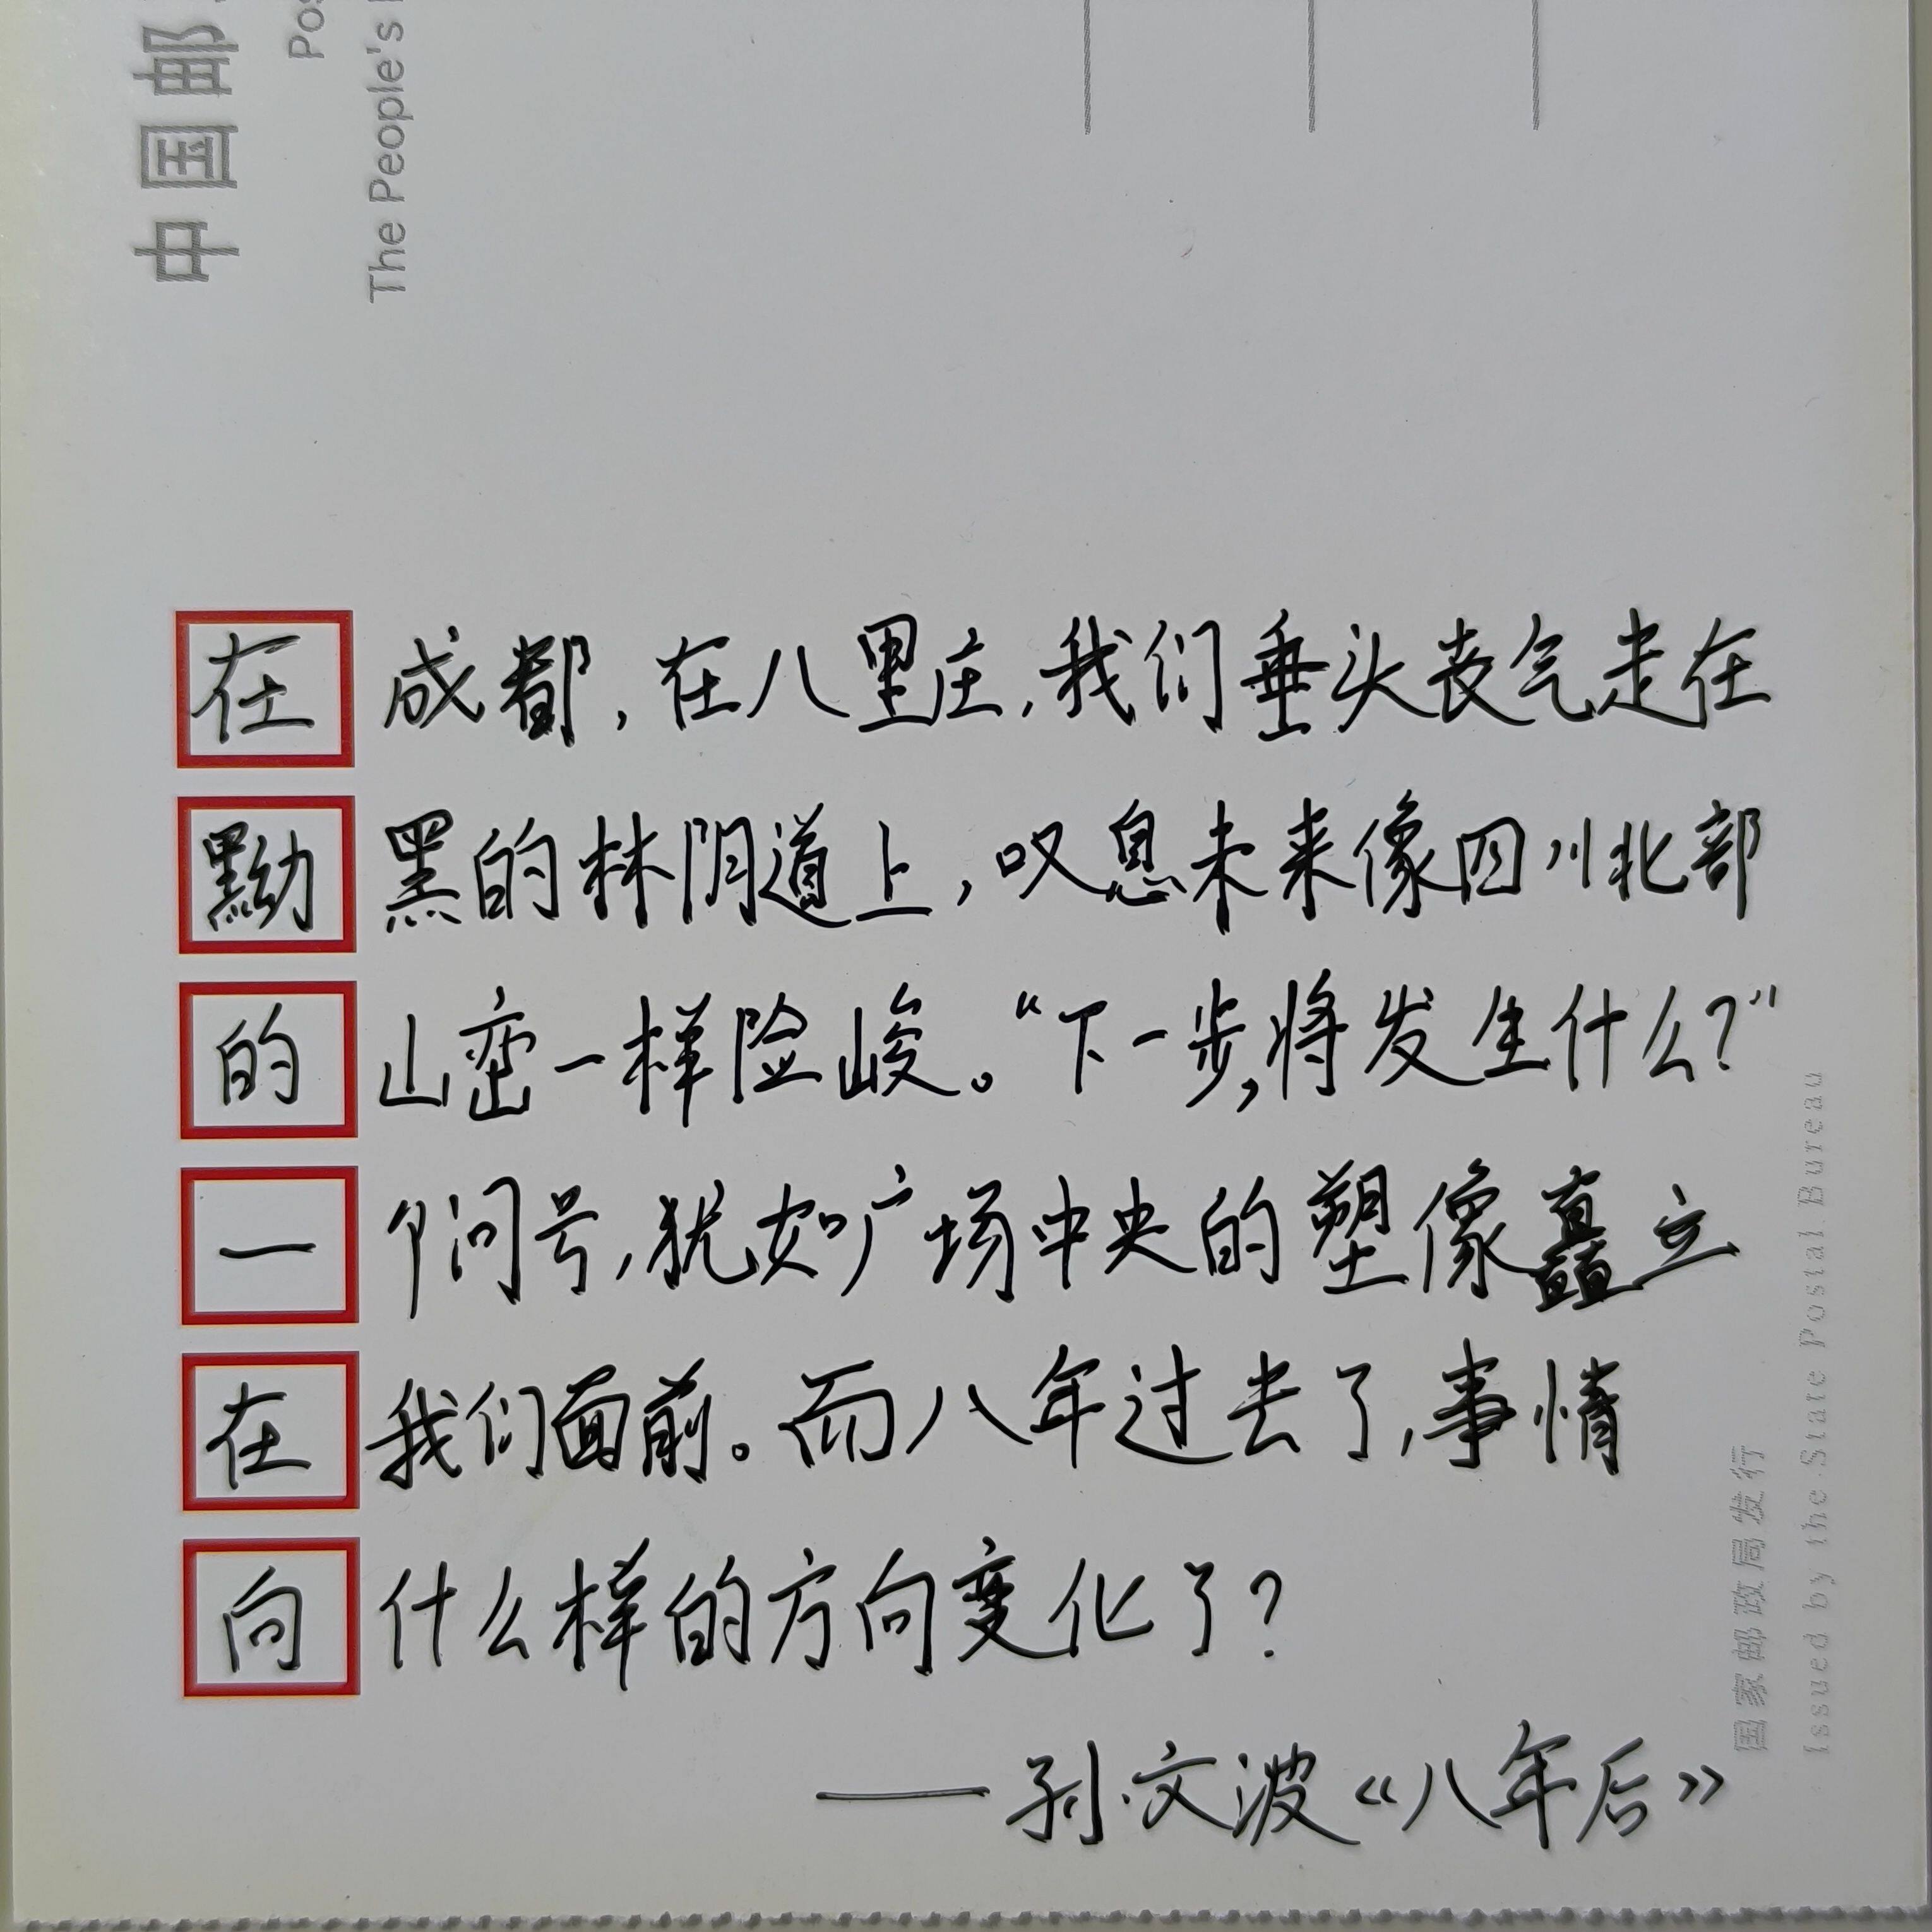 中国邮
Pos
The People's
在成都,在八里庄,我们垂头丧气走在
黝黑的林阴道上,叹息未来像四川北部
的山峦一样险峻。“下一步,将发生什么?”
一个问号,犹如广场中央的塑像矗立
在我们面前。而八年过去了,事情
向什么样的方向变化了?
——孙文波《八年后》
国家邮政局发行
Issued by the State Postal Bureau